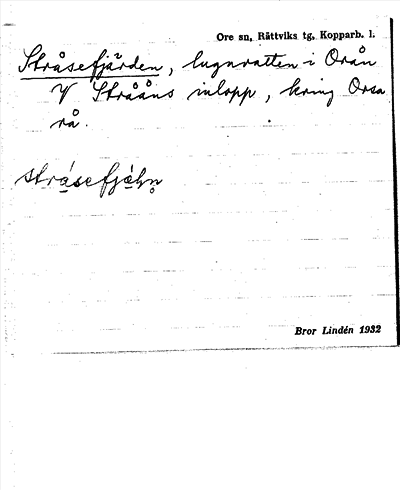 Ore sn, Rättviks tg, Kopparb. l.
Stråsefjärden, lugnvatten i Orån
V Strååns inlopp, kring Orsa
rå.
stråsefjäḷn̥
Bror Lindén 1932